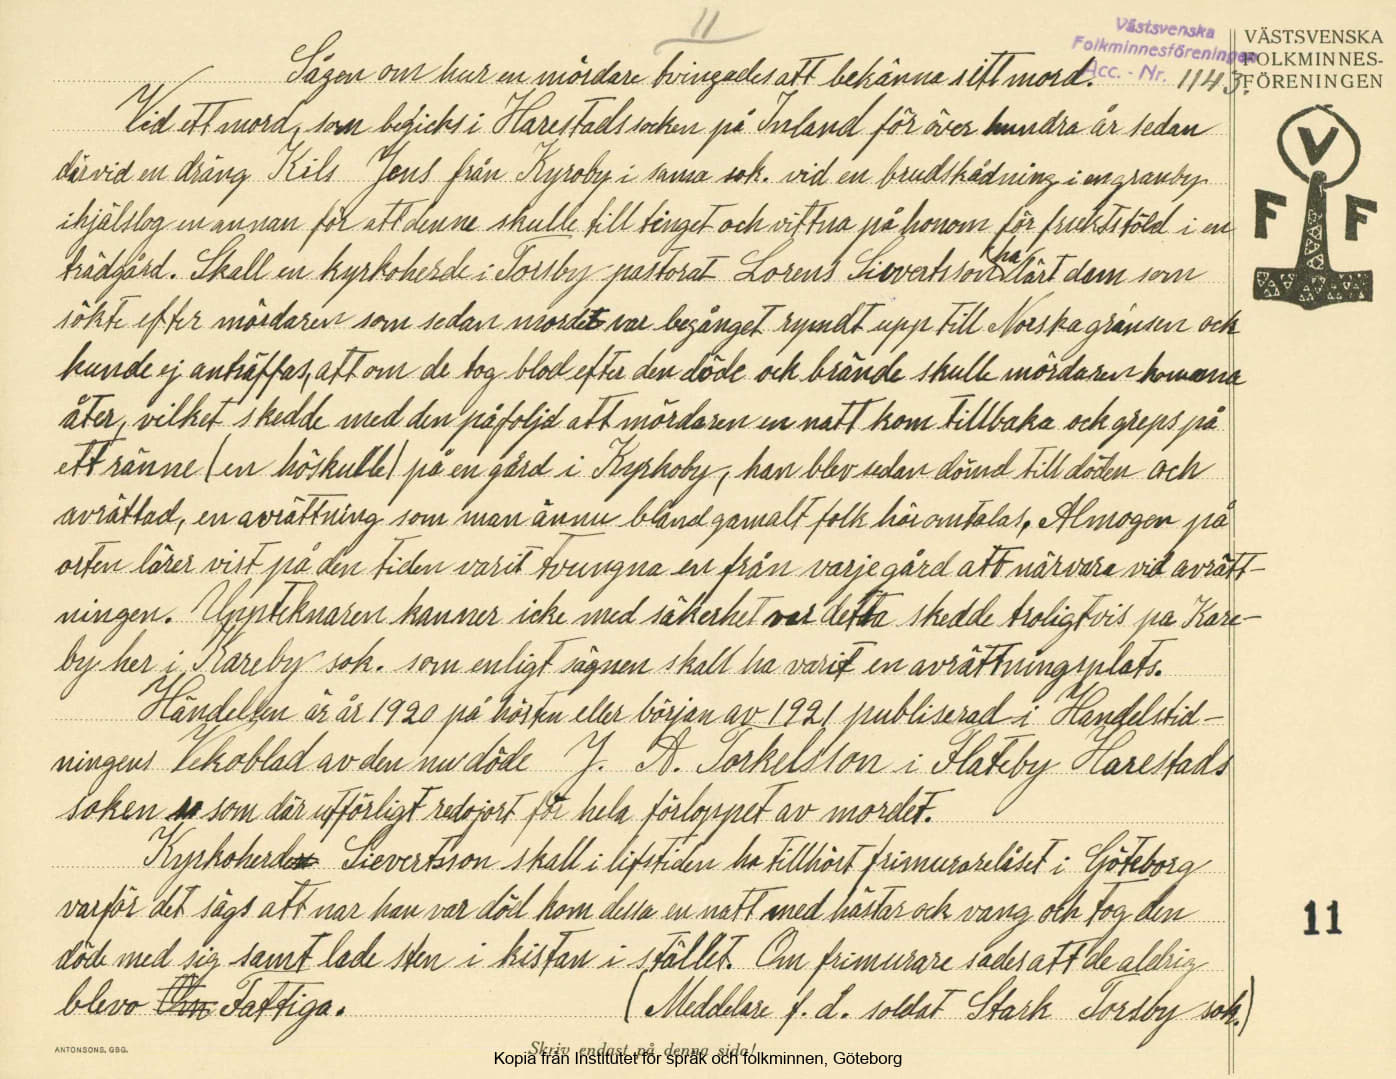 11
Västsvenska
Folkminnesföreningen
Acc. - Nr. 1143.
VÄSTSVENSKA
FOLKMINNES-
FÖRENINGEN
V
F F
Sägen om hur en mördare tvingades att bekänna sitt mord.
Vid ett mord, som begicks i Harestads socken på Inland för över hundra år sedan
därvid en dräng Kils Jens från Kyroby i sama sok. vid en brudskådning i en granby
ihjälslog en annan för att denne skulle till tinget och vittna på honom för fruktstöld i en
trädgård. Skall en kyrkoherde i Torsby pastorat Lorens Sievertsson ha lärt dem som
sökte efter mördaren som sedan mordet var begånget rymdt upp till Norska gränsen och
kunde ej anträffas, att om de tog blod efter den döde ock brände skulle mördaren komma
åter, vilket skedde med den påfoljd att mördaren en natt kom tillbaka ock greps på
ett ränne (en höskulle) på en gård i Kyrkoby, han blev sedan dömd till döden och
avrättad, en avrättning som man ännu bland gamalt folk hör omtalas. Almogen på
orten lärer vist på den tiden varit tvungna en från varje gård att närvara vid avrätt-
ningen. Uppteknaren kanner icke med säkerhet var detta skedde troligtvis pa Kare-
by her i Kareby sok. som enligt sägnen skall ha varit en avrättningsplats.
Händelsen är år 1920 på hösten eller början av 1921 publiserad i Handelstid-
ningens Vekoblad av den nu döde J. A. Torkelsson i Flateby Harestads
soken som där utförligt redojort för hela förloppet av mordet.
Kyrkoherden Sievertsson skall i lifstiden ha tillhört frimurarelåset i Göteborg
varför det sägs att nar han var död kom dessa en natt med hästar ock vang och tog den
döde med sig samt lade sten i kistan i stället. Om frimurare sades att de aldrig
blevo Om Fattiga.
(Meddelare f. d. soldat Stark Torsby sok.)
11
ANTONSONS, GBG.
Skriv endast på denna sida!
Kopia från Institutet för språk och folkminnen, Göteborg